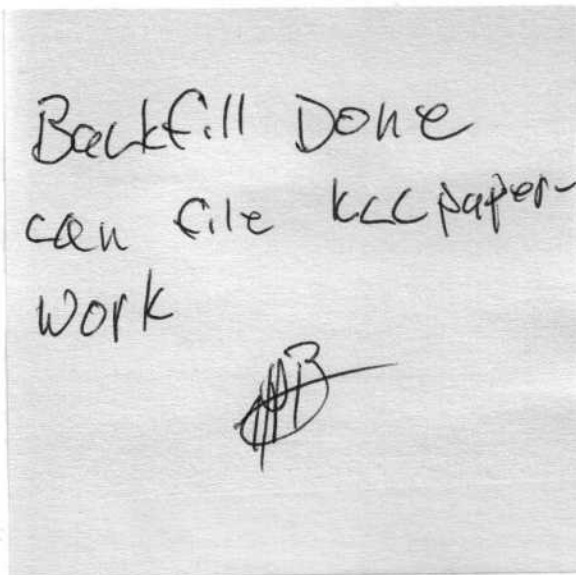 Backfill Done
can file KCC paper-
work